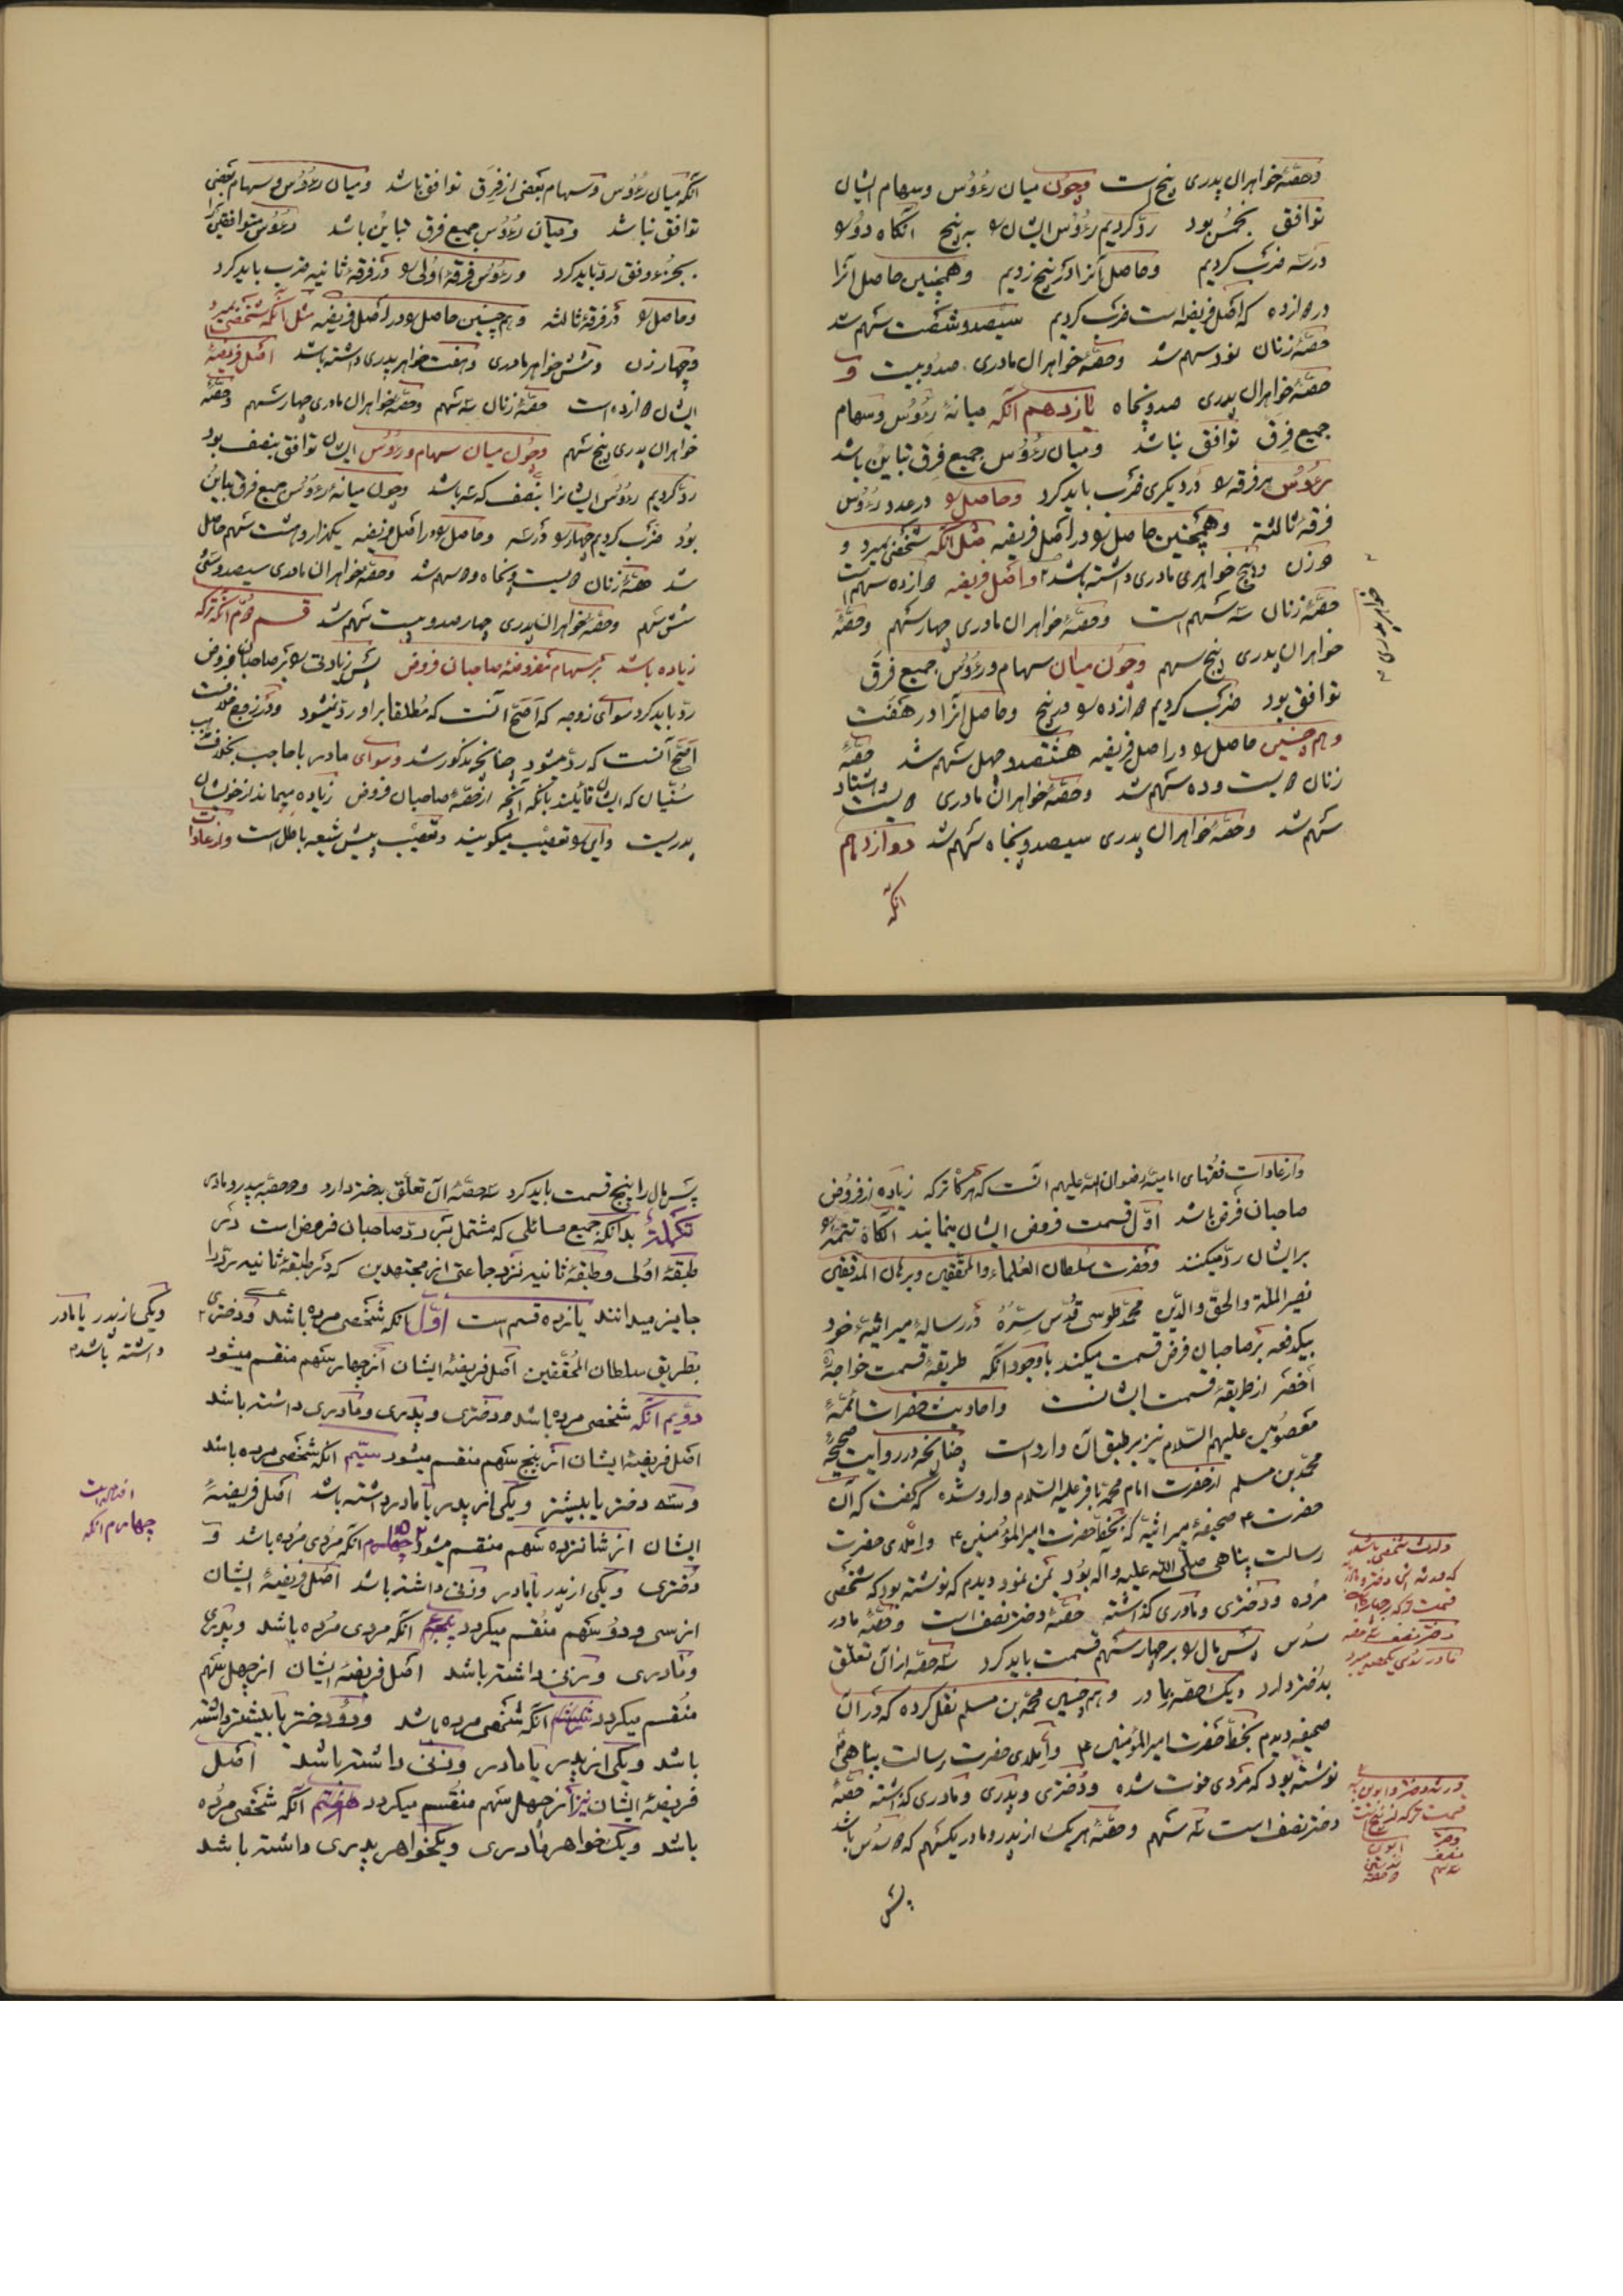 وحصّهٔ خواهران پدری پنج است وچون میان رءُوُس وسهام ایشان
توافق بخمُس بود ردّ کردیم رءُوُس ایشان را به پنج آنگاه دو را
درسه ضرب کردیم وحاصل آنرا در پنج زدیم وهمچنین حاصل آنرا
در دوازده که اصل فریضه است ضرب کردیم سیصد وشصت سهم شد
حصّهٔ زنان نود سهم شد وحصّهٔ خواهران مادری صدو بیست و
حصّهٔ خواهران پدری صدو پنجاه یازدهم آنکه میانهٔ رءُوُس وسهام
جمیع فِرَق توافق نباشد ومیان رءُوُس جمیع فِرَق تباین باشد
رءُوُس هر فرقه را در دیگری ضرب باید کرد وحاصل را در عدد رءُوُس
فرقهٔ ثالثه وهمچنین حاصل را در اصل فریضه مثل آنکه شخصی بمیرد و
دو زن وپنج خواهری مادری داشته باشد واصل فریضه دوازده سهم است
حصّهٔ زنان سه سهم است وحصّهٔ خواهران مادری چهار سهم وحصّهٔ
خواهران پدری پنج سهم وچون میان سهام ورءُوُس جمیع فرق
توافق بود ضرب کردیم دوازده را در پنج وحاصل آنرا در هفت
وهم چنین حاصل را در اصل فریضه هشتصد وچهل سهم شد حصّهٔ
زنان دویست وده سهم شد وحصّهٔ خواهران مادری دویست وهشتاد
سهم شد وحصّهٔ خواهران پدری سیصد وپنجاه سهم شد دوازدهم
آنکه
آنکه میان رءُوُس وسهام بعضی از فِرَق توافق باشد ومیان رءُوُس وسهام بعضی
توافق نباشد ومیان رءُوُس جمیع فرق تباین باشد رءُوُس متوافقین را
بجزء وفق ردّ باید کرد ورءُوُس فرقهٔ اُولی را در فرقهٔ ثانیه ضرب باید کرد
وحاصل را در فرقهٔ ثالثه وهم چنین حاصل را در اصل فریضه مثل آنکه شخصی بمیرد
وچهار زن وشش خواهر مادری وهفت خواهر پدری داشته باشد اصل فریضهٔ
ایشان دوازده است حصّهٔ زنان سه سهم وحصّهٔ خواهران مادری چهار سهم وحصّهٔ
خواهران پدری پنج سهم وچون میان سهام ورءُوُس ایشان توافق بنصف بود
ردّ کردیم رءُوُس ایشانرا بنصف که سه باشد وچون میانهٔ رءُوُس جمیع فرق تباین
بُود ضرب کردیم چهار را در سه وحاصل را در اصل فریضه یکهزار وهشت سهم حاصل
شد حصّهٔ زنان دویست وپنجاه ودو سهم شد وحصّهٔ خواهران مادری سیصد وسی
شش سهم وحصّهٔ خواهران پدری چهار صدو بیست سهم شد قسم دوّم آنکه ترکه
زیاده باشد بر سهام مفروضهٔ صاحبان فروض پس زیادتی را بر صاحبان فروض
ردّ باید کرد سوای زوجه که اصحّ آنست که مُطلقا بر او ردّ نمیشود ودر زوج
اصحّ آنست که ردّ میشود چنانچه مذکور شد وسوای مادر با حاجب بخلاف
سُنّیان که ایشان قائلند بآنکه آنچه از حصّهٔ صاحبان فروض زیاده میماند از خویشان
پدریست واین را تعصیب میگویند وتعصیب پیش شیعه باطل است واز عادات
وازعادات فقهای امامیّه رضوان اللّه علیهم آنست که هرگاه ترکه زیاده از فروض
صاحبان فرض باشد اوّل قسمت فروض ایشان ینمایند آنگاه تتمّه را
بر ایشان ردّ میکنند وحضرت سُلطان العُلماء والمحقّقین وبرهان المدقّقین
نصیر الملّة والحقّ والدّین محمّد طوسی قُدّس سرّهُ در رسالهٔ میراثیهٔ خود
بیکدفعه بر صاحبان فرض قسمت میکند باوجود آنکه طریقهٔ قسمت خواجه
أخصر از طریقهٔ قسمت ایشانست واحادیث حضرات ائمّهٔ
معصُومین علیهم السّلام نیز بر طبق آن وارد است چنانچه در روایت صحیحهٔ
محمّد بن مسلم از حضرت امام محمّد باقر علیه السّلام وارد شده که گفت که آن
حضرت ع صحیفهٔ میراثیّه که بخطّ حضرت امیر المؤمنین ع واملای حضرت
رسالت پناهی صلّی اللّه علیه وآله بُود بمن نمود ودیدم که نوشته بود که شخصی
مُرده ودختری ومادری گذاشته حصّهٔ دختر نصف است وحصّهٔ مادر
سدُس پس مال را بر چهار سهم قسمت باید کرد سه حصّه از آن تعلّق
بدُختر دارد ویک حصّه بمادر وهم چنین محمّد بن مسلم نقل کرده که در آن
صحیفه دیدم بخطّ حضرت امیر المؤمنین ع واملای حضرت رسالت پناهی
نوشته بود که مردی فوت شده ودُختری وپدری ومادری گذاشته حصّهٔ
دختر نصف است سه سهم وحصّهٔ هریک از پدر ومادر یکسهم که دو سدُس باشد
پس
پس مال را پنج قسمت باید کرد سه حصّهٔ آن تعلّق بدختر دارد ودو حصّه بپدر ومادر
تکملهٔ بدانکه جمیع مسائلی که مشتمل بر ردّ صاحبان فروض است در
طبقهٔ اوُلی وطبقهٔ ثانیه نزد جماعتی از مجتهدین که در طبقهٔ ثانیه ردّ را
جایز میدانند یانزده قسم است اوّل آنکه شخصی مرده باشد ودختری
بطریق سلطان المُحقّقین اصل فریضهٔ ایشان از چهار سهم منقسم میشود
دوّیم آنکه شخصی مرده باشد ودختری وپدری ومادری داشته باشد
اصل فریضهٔ ایشان از پنج سهم منقسم میشود سیّم آنکه شخصی مرده باشد
وسه دختر یا بیشتر ویکی از پدر یا مادر داشته باشد اصل فریضهٔ
ایشان از شانزده سهم منقسم میشود چهارم آنکه مردی مُرده باشد و
دختری ویکی از پدر یا مادر وزنی داشته باشد اصل فریضهٔ ایشان
از سی ودوُ سهم منُقسم میگردد پنجم آنکه مردی مُرده باشد وپدری
ومادری وزنی داشته باشد اصل فریضهٔ ایشان از چهل سهم
منُقسم میگردد ششم آنکه شخصی مرده باشد ودوُ دختر یا بیشتر داشته
باشد ویکی از پدر یا مادر وزنی داشته باشد اصل
فریضهٔ ایشان نیز از چهل سهم منُقسم میگردد هفتم آنکه شخصی مُرده
باشد ویک خواهر مُادری ویکخواهر پدری داشته باشد
ویکی از پدر یا مادر
داشته باشد
چهارم آنکه